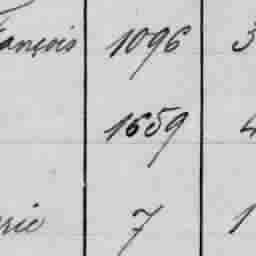 ançois 1096 3
1659 4
rie 7 1